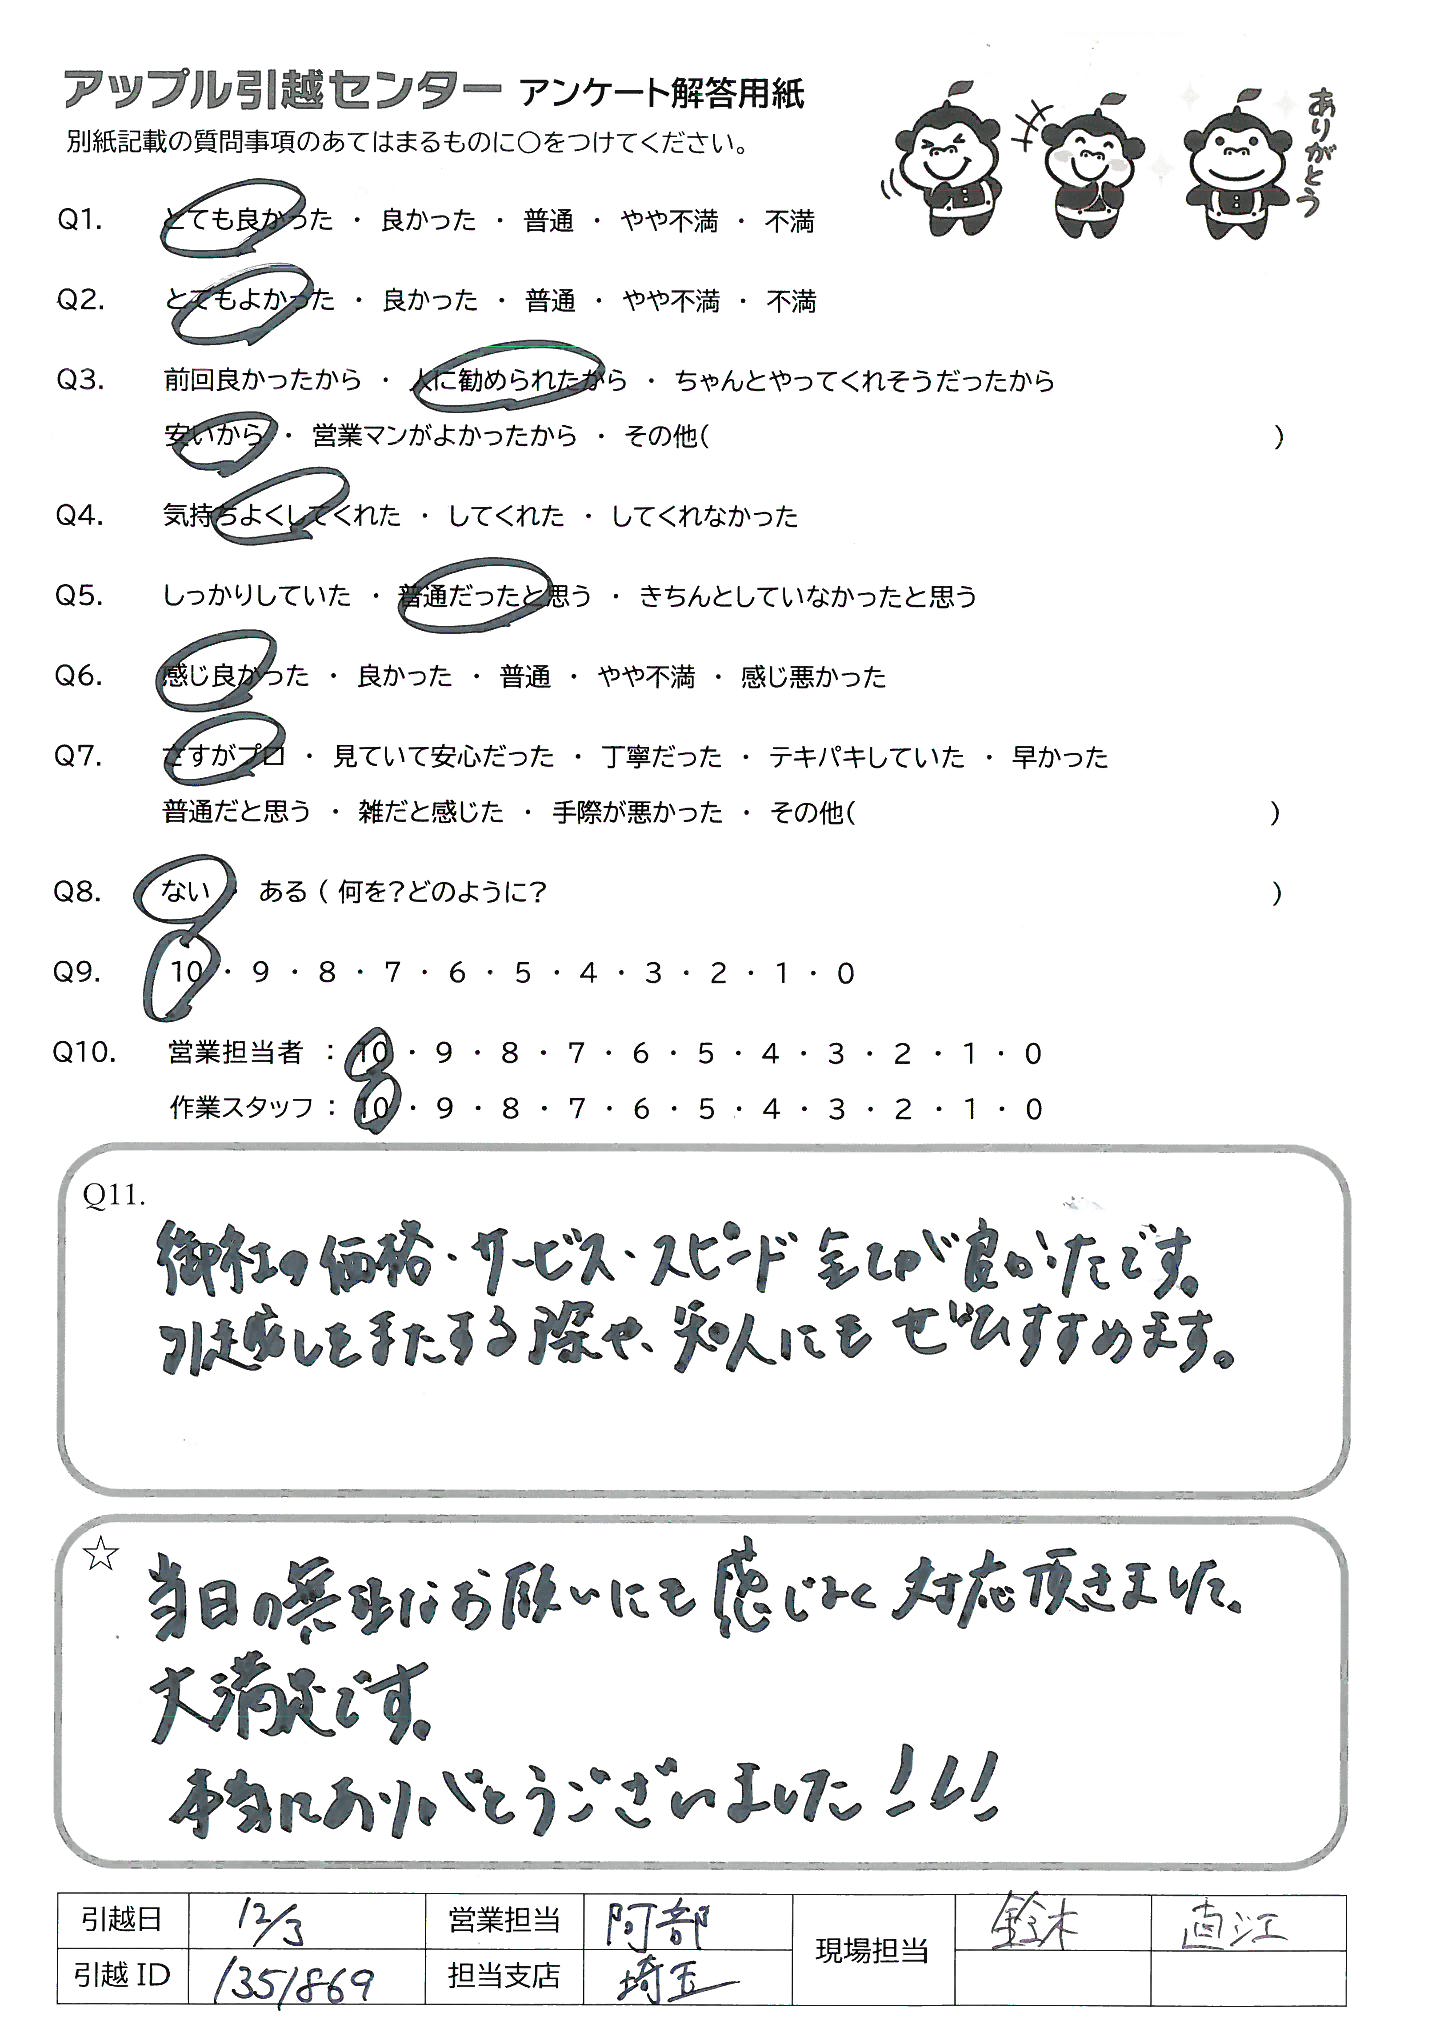 アップル引越センター アンケート解答用紙
別紙記載の質問事項のあてはまるものに○をつけてください。
ありがとう
Q1. とても良かった ・ 良かった ・ 普通 ・ やや不満 ・ 不満
Q2. とてもよかった ・ 良かった ・ 普通 ・ やや不満 ・ 不満
Q3. 前回良かったから ・ 人に勧められたから ・ ちゃんとやってくれそうだったから
安いから ・ 営業マンがよかったから ・ その他( )
Q4. 気持ちよくしてくれた ・ してくれた ・ してくれなかった
Q5. しっかりしていた ・ 普通だったと思う ・ きちんとしていなかったと思う
Q6. 感じ良かった ・ 良かった ・ 普通 ・ やや不満 ・ 感じ悪かった
Q7. さすがプロ ・ 見ていて安心だった ・ 丁寧だった ・ テキパキしていた ・ 早かった
普通だと思う ・ 雑だと感じた ・ 手際が悪かった ・ その他( )
Q8. ない ・ ある ( 何を?どのように? )
Q9. 10 ・ 9 ・ 8 ・ 7 ・ 6 ・ 5 ・ 4 ・ 3 ・ 2 ・ 1 ・ 0
Q10. 営業担当者 : 10 ・ 9 ・ 8 ・ 7 ・ 6 ・ 5 ・ 4 ・ 3 ・ 2 ・ 1 ・ 0
作業スタッフ : 10 ・ 9 ・ 8 ・ 7 ・ 6 ・ 5 ・ 4 ・ 3 ・ 2 ・ 1 ・ 0
Q11.
御社の価格・サービス・スピード 全てが良かったです。
引越しをまたする際や、知人にも ぜひすすめます。
☆ 当日の無理なお願いにも 感じよく 対応頂きました。
大満足です。
本当にありがとうございました!!!
引越日 12/3 営業担当 阿部 現場担当 鈴木 直江
引越ID 1351869 担当支店 埼玉